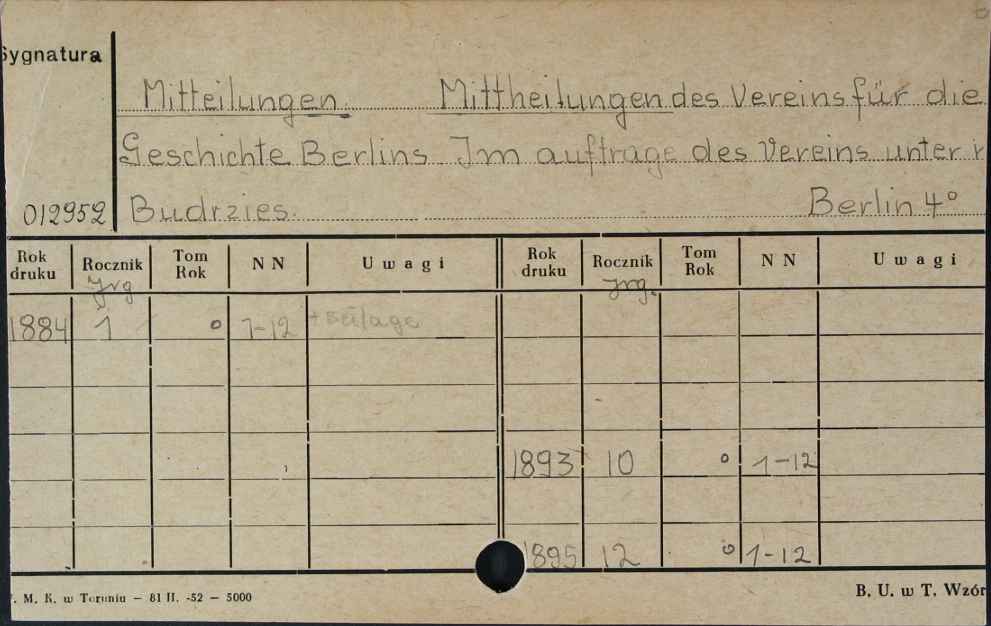 Sygnatura
Mitteilungen. Mittheilungen des Vereins für die
Geschichte Berlins Im auftrage des Vereins unter
012952 Budrzies. Berlin 4°
Rok druku Rocznik Tom Rok N N Uwagi Rok druku Rocznik Tom Rok N N Uwagi
Jrg Jrg.
1884 1 o 1-12 + Beilage
1893 10 o 1-12
1895 12 o 1-12
. M. K. w Toruniu — 81 II. -52 — 5000 B. U. w T. Wzór